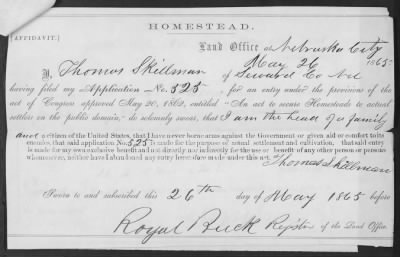 HOMESTEAD.
[AFFIDAVIT.]
Land Office at Nebraska City
May 26 1865
I, Thomas Skillman of Seward Co Neb
having filed my Application No. 525, for an entry under the provisions of the
act of Congress approved May 20, 1862, entitled "An act to secure Homesteads to actual
settlers on the public domain," do solemnly swear, that I am the head of a family
and a citizen of the United States, that I have never borne arms against the Government or given aid or comfort to its
enemies, that said application No. 525 is made for the purpose of actual settlement and cultivation, that said entry
is made for my own exclusive benefit and not directly nor indirectly for the use or benefit of any other person or persons
whomsoever, neither have I abandoned any entry heretofore made under this act.
Thomas Skillman
Sworn to and subscribed this 26th day of May 1865 before
Royal Buck Regis'r of the Land Office.